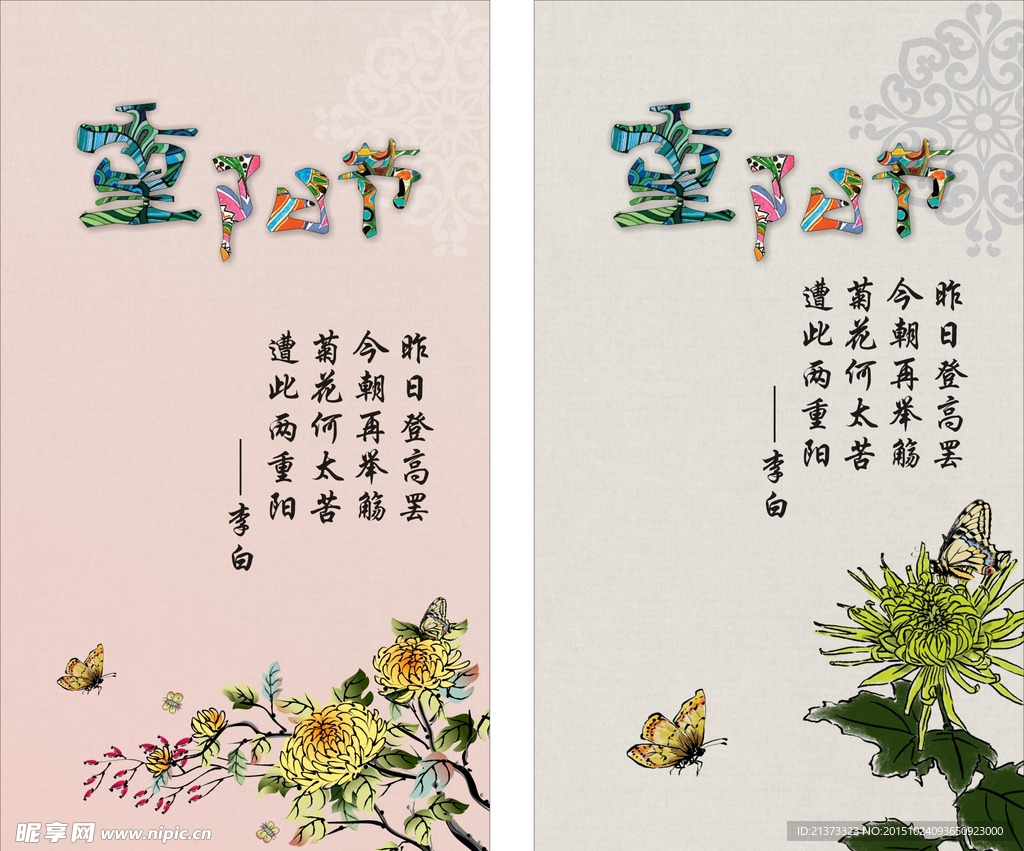 重阳节
昨日登高罢
今朝再举觞
菊花何太苦
遭此两重阳
——李白
重阳节
昨日登高罢
今朝再举觞
菊花何太苦
遭此两重阳
——李白
昵享网 www.nipic.cn
ID:21373323 NO:20151024093650923000